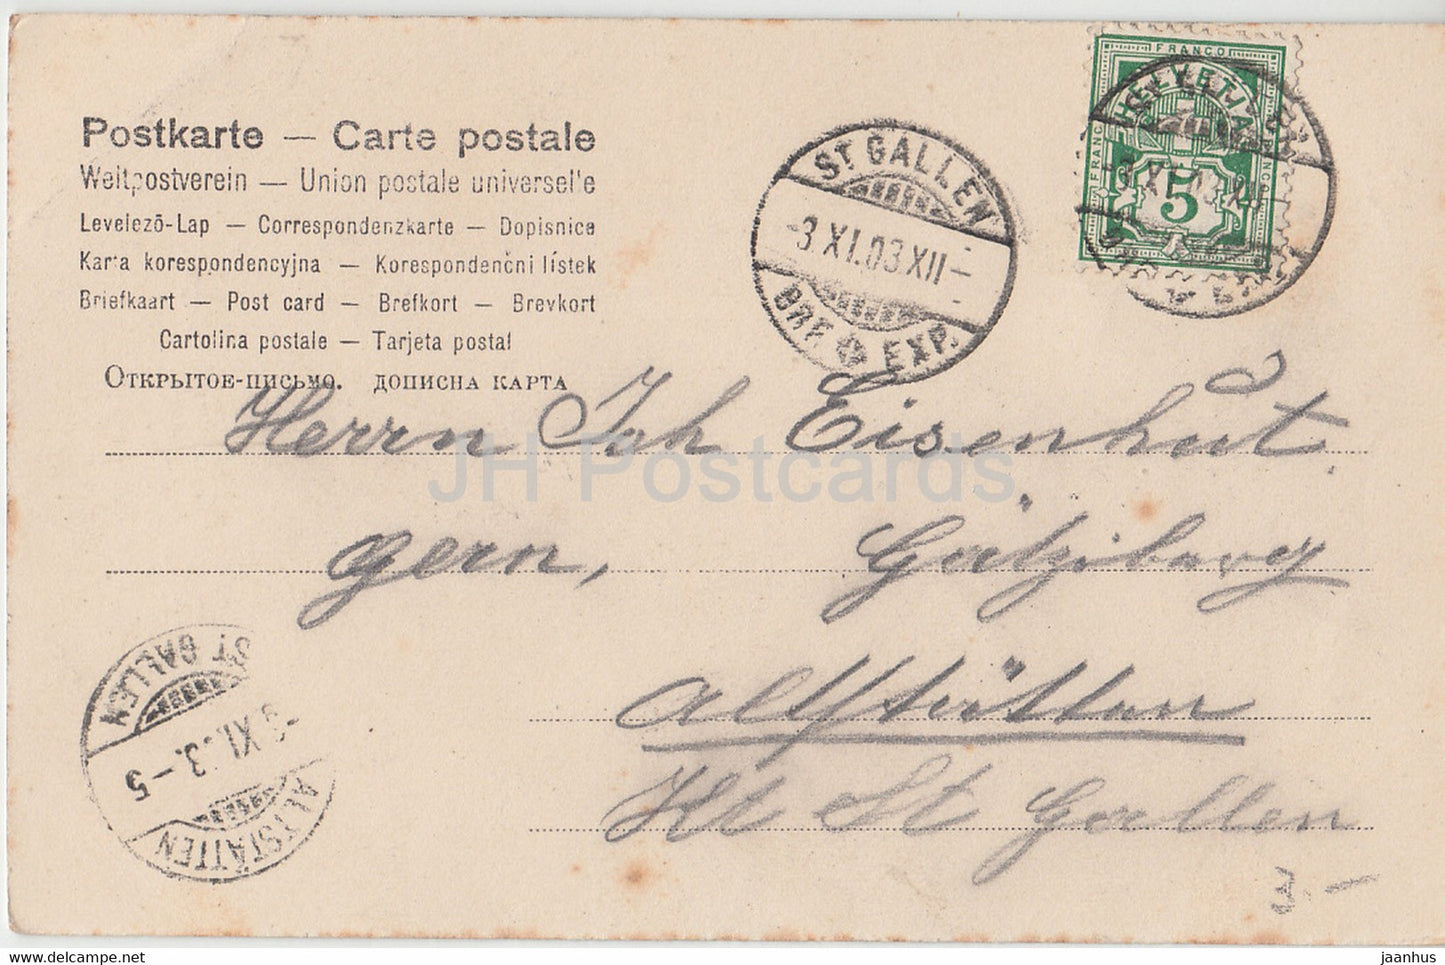 Postkarte — Carte postale
Weltpostverein — Union postale universel'e
Levelezõ-Lap — Correspondenzkarte — Dopisnica
Karta korespondencyjna — Korespondenčni lístek
Briefkaart — Post card — Brefkort — Brevkort
Cartolina postale — Tarjeta postal
Открытое-письмо. дописна карта
FRANCO
HELVETIA
FRANCO
FRANCO
5
ST. GALLEN
-3 XI.03.XII-
BRF. EXP.
Herrn Joh Eisenhut
gern, Gätziberg
Altstätten
Kt St Gallen
ST GALLEN
-3 XI.03.-5
ALTSTÄTTEN
3.-
JH Postcards
jaanhus